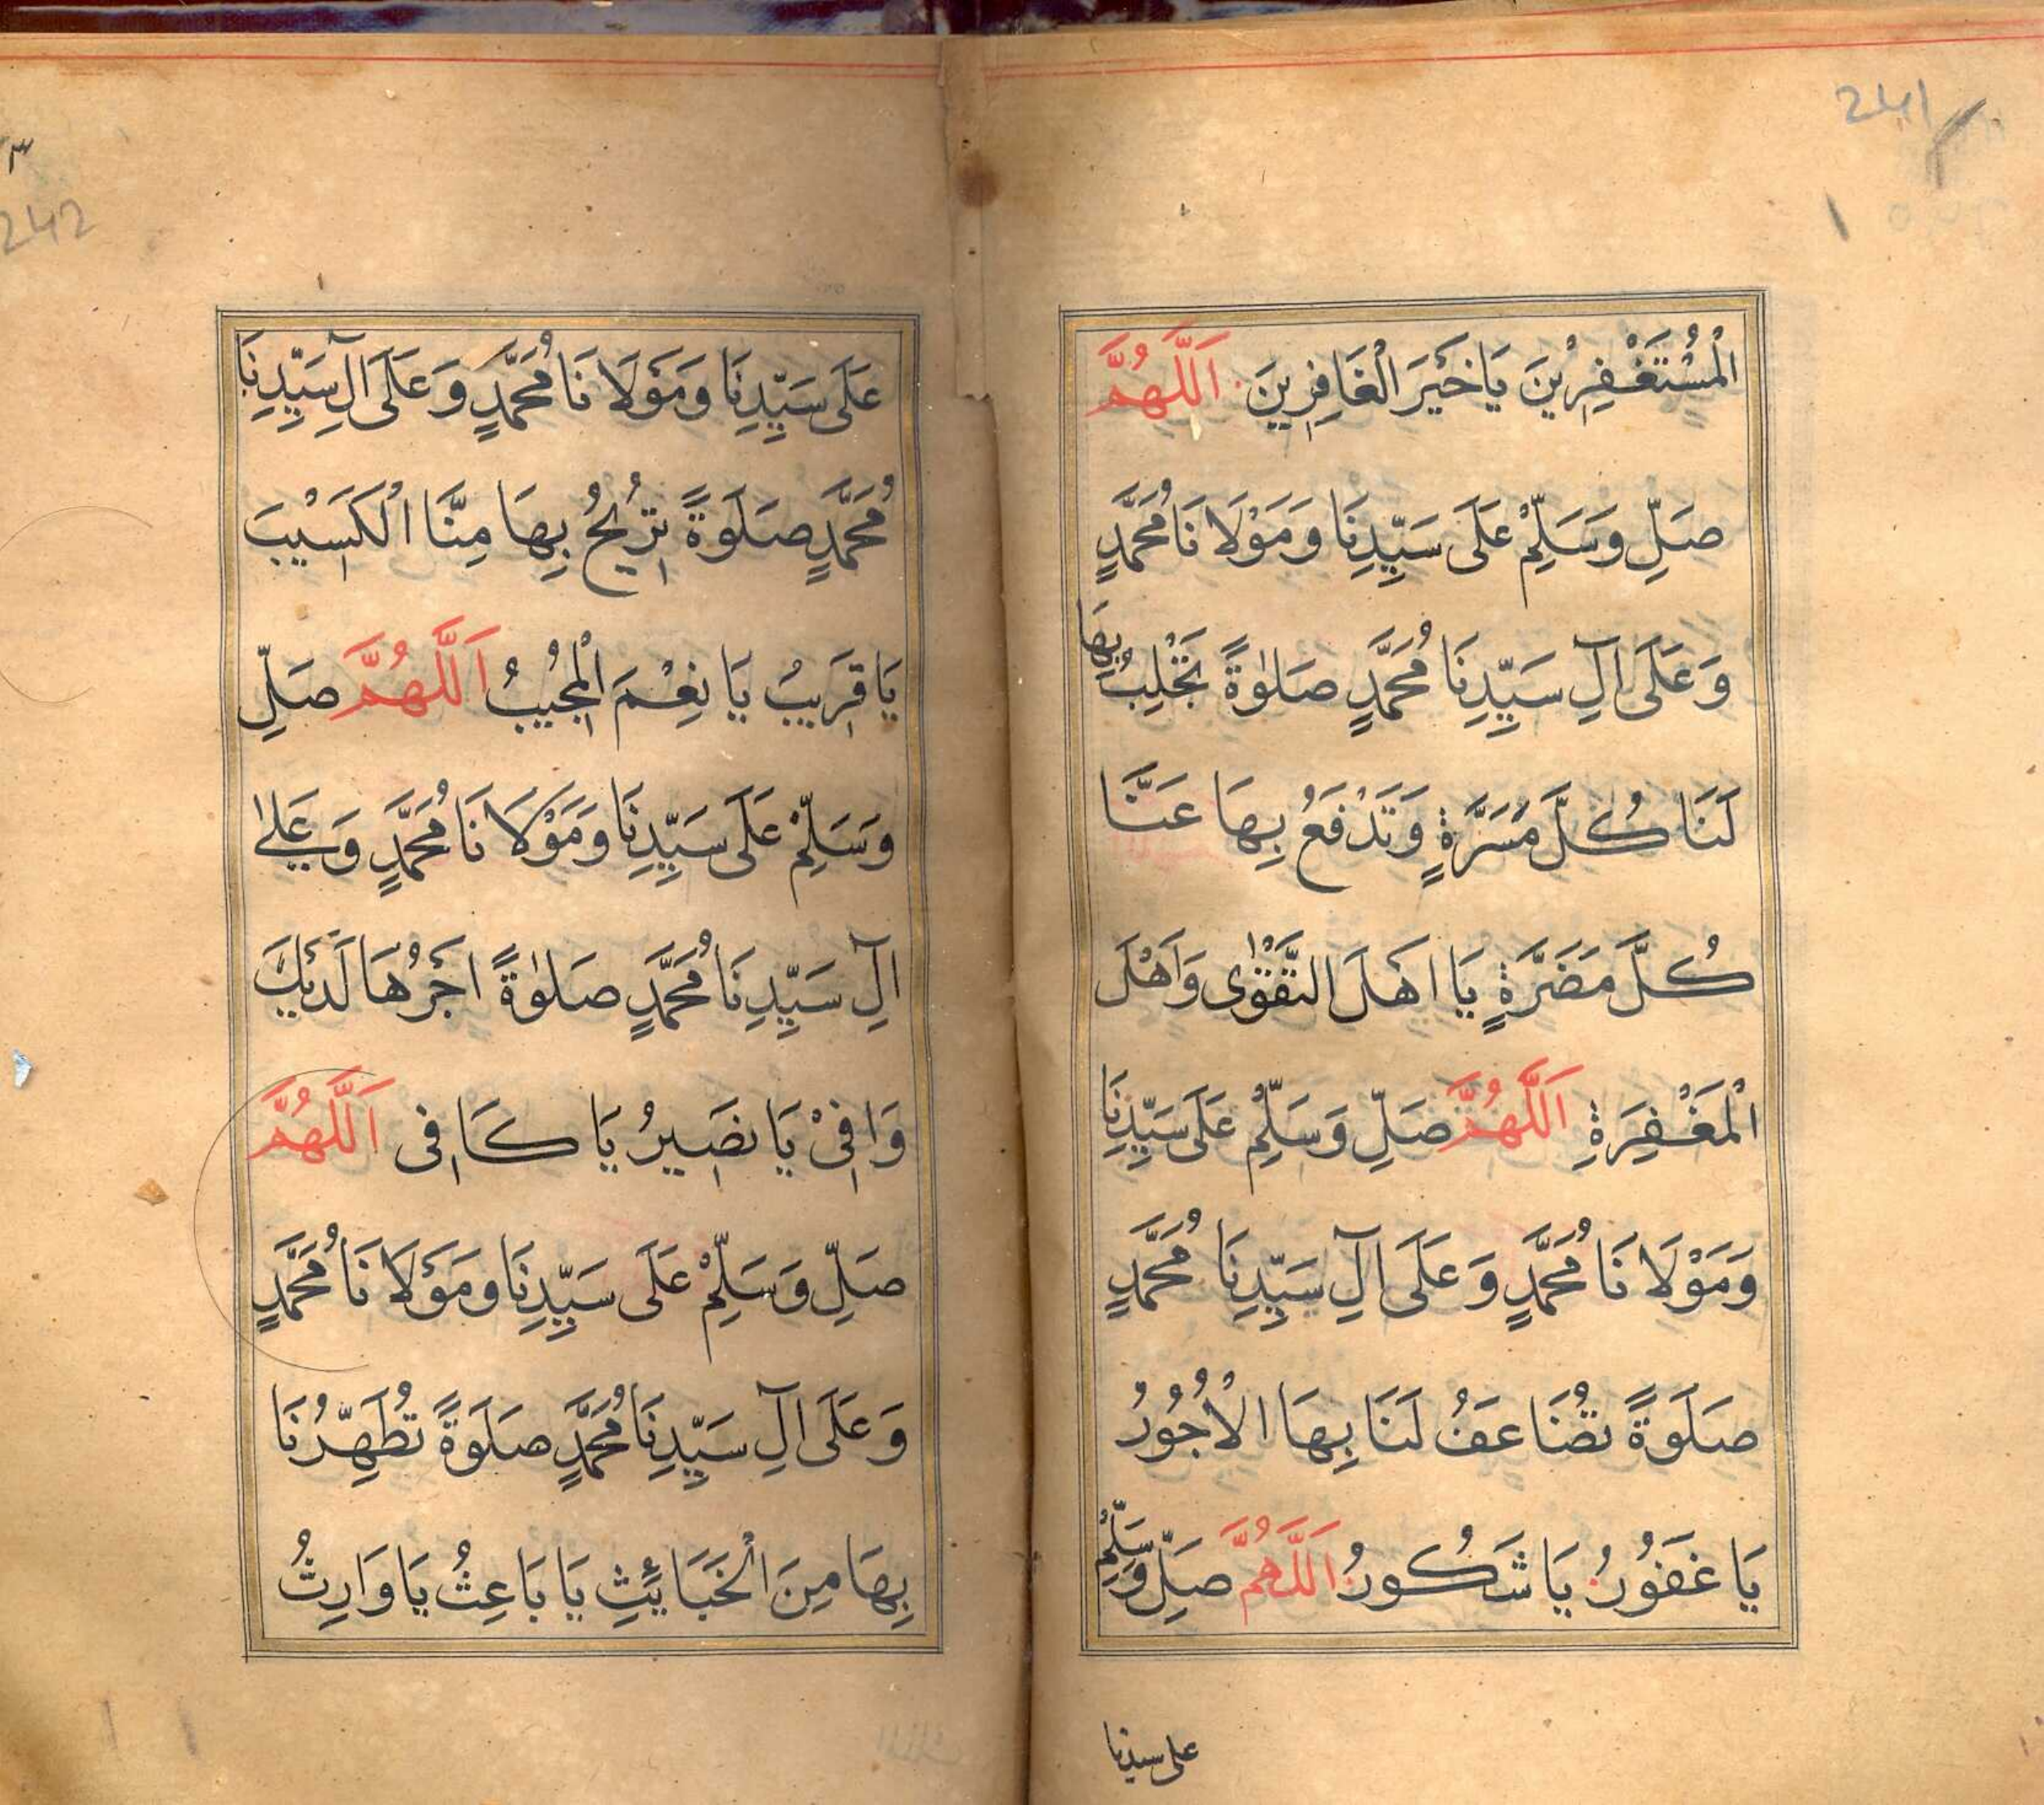 241
الْمُسْتَغْفِرِيْنَ يَا خَيْرَ الْغَافِرِينَ اَللّٰهُمَّ
صَلِّ وَسَلِّمْ عَلَى سَيِّدِنَا وَمَوْلَانَا مُحَمَّدٍ
وَعَلَى اٰلِ سَيِّدِنَا مُحَمَّدٍ صَلٰوةً تَجْلِبُ بِهَا
لَنَا كُلَّ مَسَرَّةٍ وَتَدْفَعُ بِهَا عَنَّا
كُلَّ مَضَرَّةٍ يَا اَهْلَ التَّقْوٰى وَاَهْلَ
الْمَغْفِرَةِ اَللّٰهُمَّ صَلِّ وَسَلِّمْ عَلَى سَيِّدِنَا
وَمَوْلَانَا مُحَمَّدٍ وَعَلَى اٰلِ سَيِّدِنَا مُحَمَّدٍ
صَلَوةً تُضَاعَفُ لَنَا بِهَا الْاُجُوْرُ
يَا غَفُوْرُ يَا شَكُورُ اَللّٰهُمَّ صَلِّ وَسَلِّمْ
على سيدنا
242
عَلَى سَيِّدِنَا وَمَوْلَانَا مُحَمَّدٍ وَعَلَى اٰلِ سَيِّدِنَا
مُحَمَّدٍ صَلَوةً تُرِيْحُ بِهَا مِنَّا الْكَسِيْبَ
يَا قَرِيبُ يَا نِعْمَ الْمُجِيْبُ اَللّٰهُمَّ صَلِّ
وَسَلِّمْ عَلَى سَيِّدِنَا وَمَوْلَانَا مُحَمَّدٍ وَعَلٰى
اٰلِ سَيِّدِنَا مُحَمَّدٍ صَلٰوةً اَجْرُهَا لَدَيْكَ
وَافِىْ يَا نَصِيرُ يَا كَافِى اَللّٰهُمَّ
صَلِّ وَسَلِّمْ عَلَى سَيِّدِنَا وَمَوْلَانَا مُحَمَّدٍ
وَعَلَى اٰلِ سَيِّدِنَا مُحَمَّدٍ صَلَوةً تُطَهِّرُنَا
بِهَا مِنَ الْخَبَائِثِ يَا بَاعِثُ يَا وَارِثُ